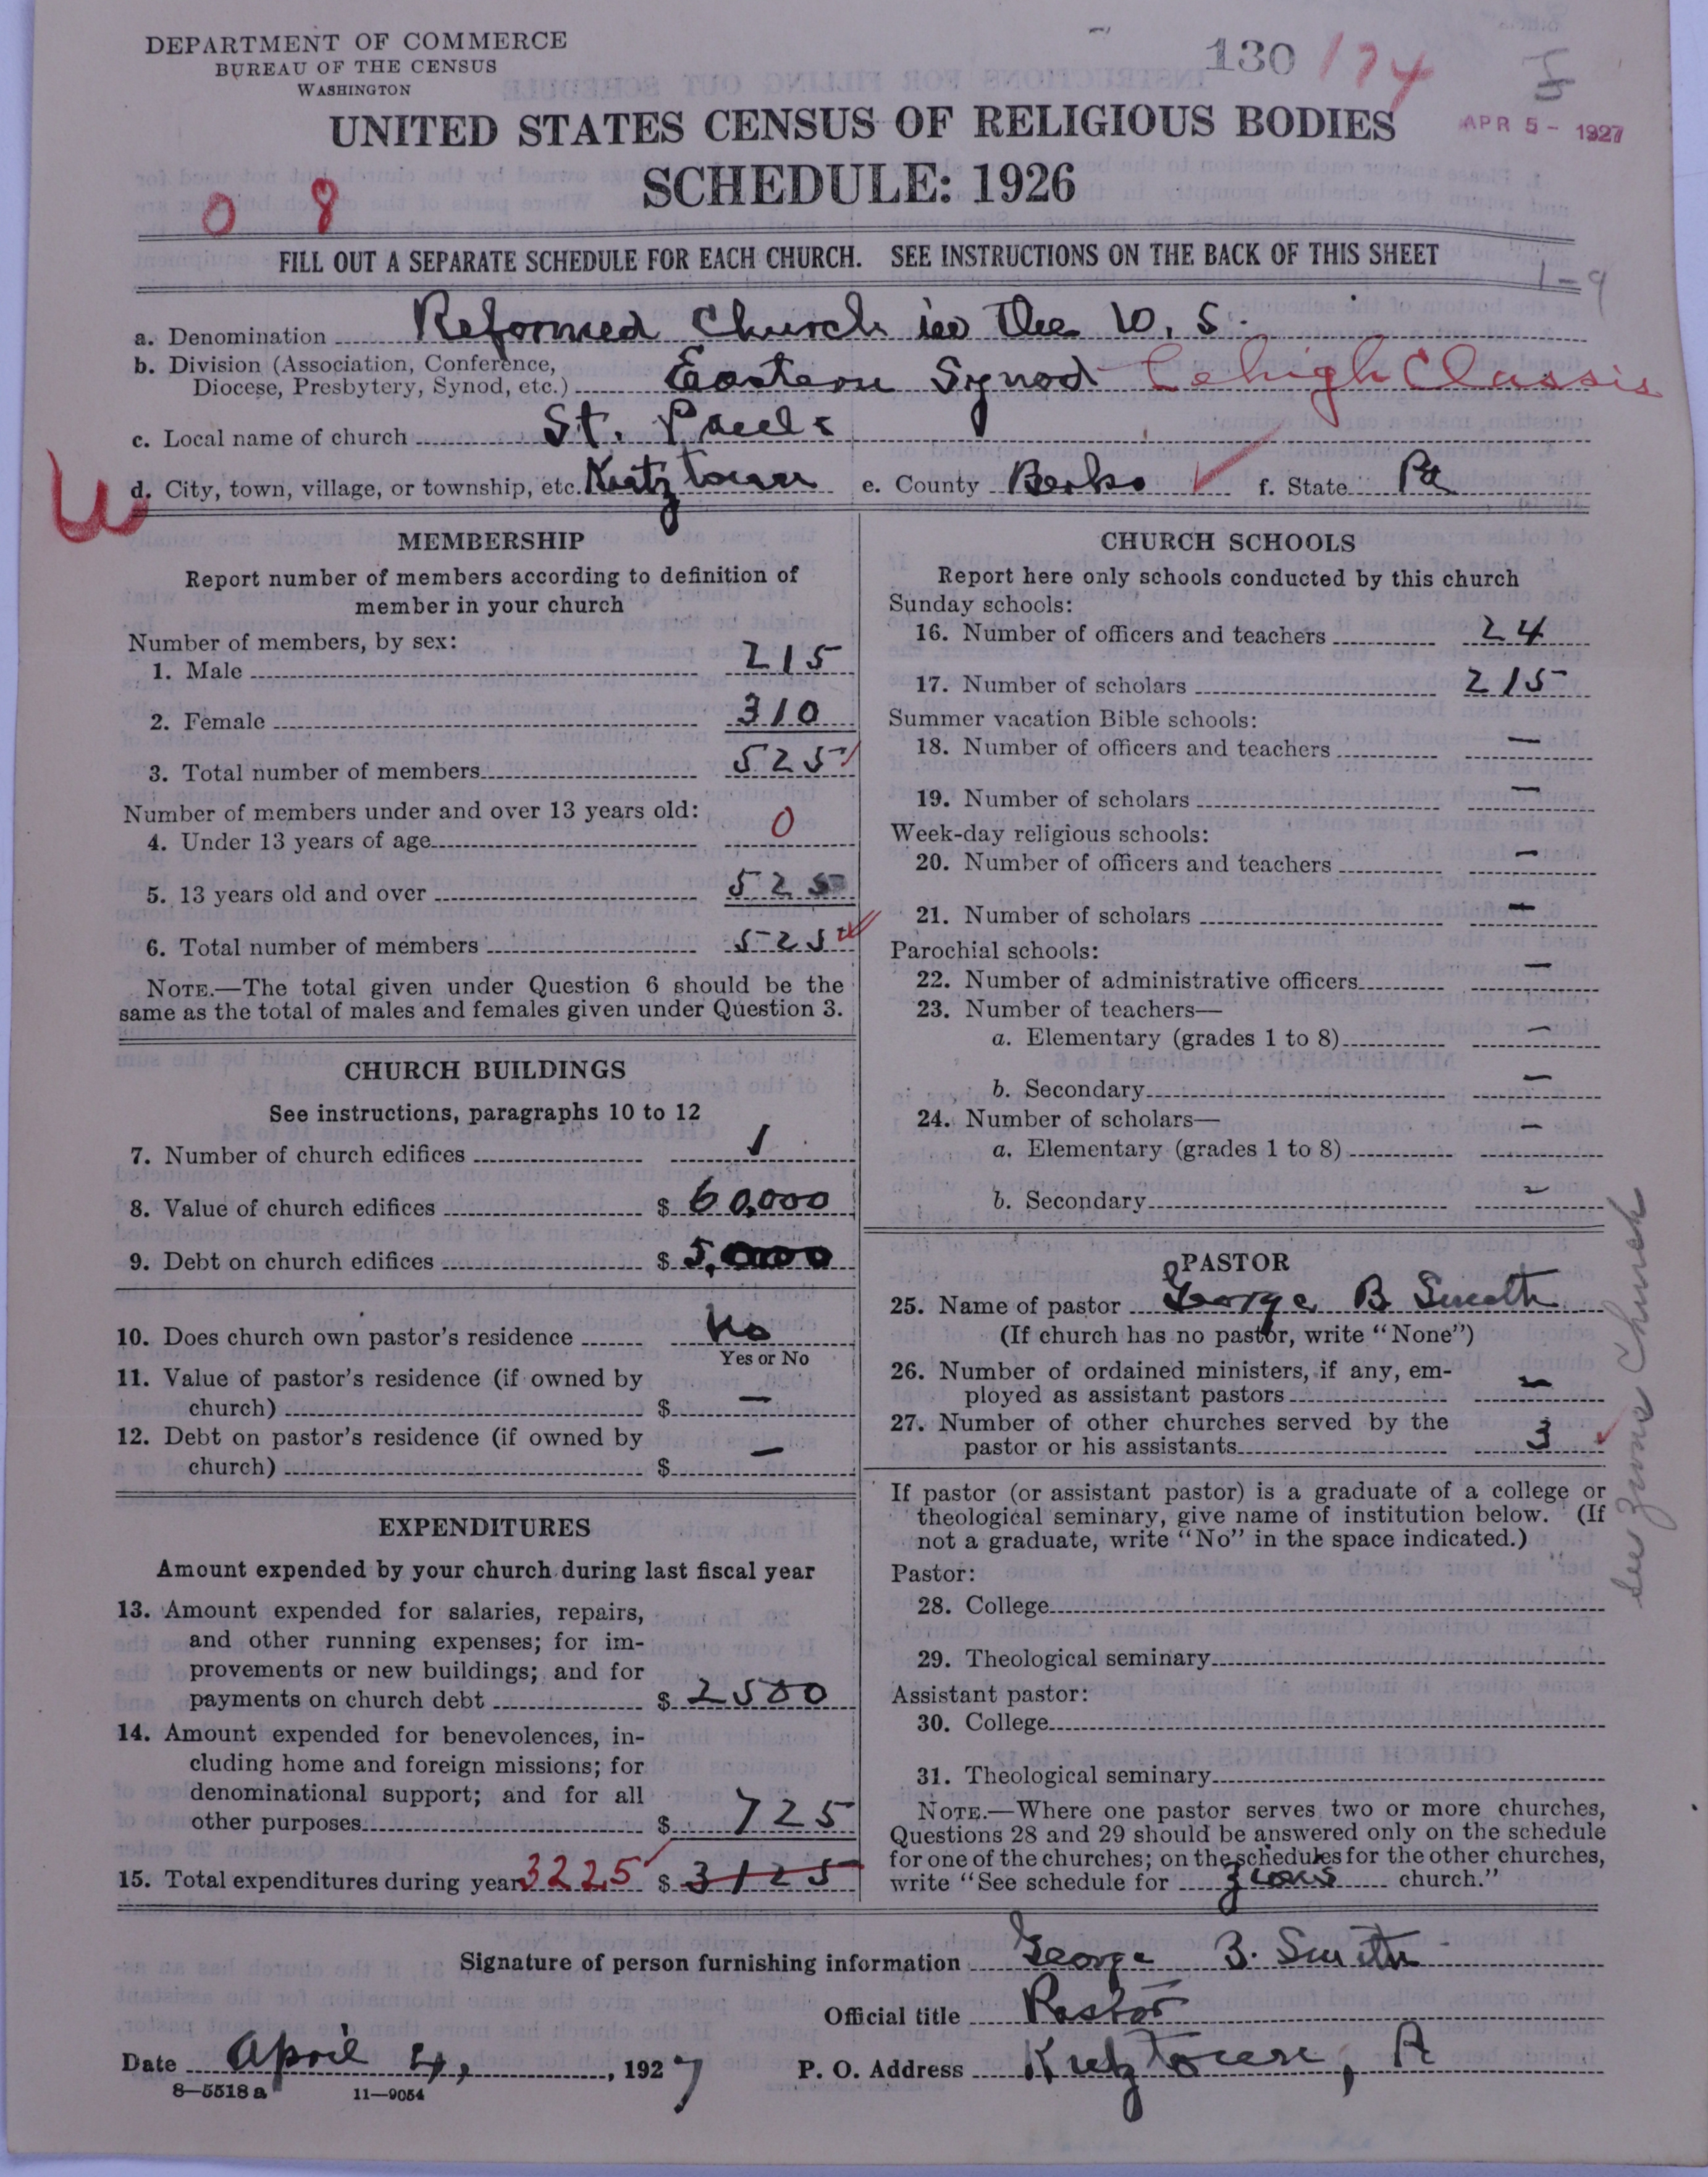 DEPARTMENT OF COMMERCE
BUREAU OF THE CENSUS
WASHINGTON
130 174
UNITED STATES CENSUS OF RELIGIOUS BODIES
APR 5 - 1927
SCHEDULE: 1926
0 8
FILL OUT A SEPARATE SCHEDULE FOR EACH CHURCH. SEE INSTRUCTIONS ON THE BACK OF THIS SHEET
1-9
a. Denomination Reformed Church in the U. S.
b. Division (Association, Conference,
Diocese, Presbytery, Synod, etc.) Eastern Synod Lehigh Classis
c. Local name of church St. Pauls
d. City, town, village, or township, etc. Kutztown e. County Berks f. State Pa
MEMBERSHIP
Report number of members according to definition of
member in your church
Number of members, by sex:
1. Male 215
2. Female 310
3. Total number of members 525
Number of members under and over 13 years old:
4. Under 13 years of age 0
5. 13 years old and over 525
6. Total number of members 525
NOTE.—The total given under Question 6 should be the
same as the total of males and females given under Question 3.
CHURCH BUILDINGS
See instructions, paragraphs 10 to 12
7. Number of church edifices 1
8. Value of church edifices $ 60,000
9. Debt on church edifices $ 5,000
10. Does church own pastor's residence No
Yes or No
11. Value of pastor's residence (if owned by
church) $ —
12. Debt on pastor's residence (if owned by
church) $ —
EXPENDITURES
Amount expended by your church during last fiscal year
13. Amount expended for salaries, repairs,
and other running expenses; for im-
provements or new buildings; and for
payments on church debt $ 2500
14. Amount expended for benevolences, in-
cluding home and foreign missions; for
denominational support; and for all
other purposes $ 725
15. Total expenditures during year 3225 $ 3125
CHURCH SCHOOLS
Report here only schools conducted by this church
Sunday schools:
16. Number of officers and teachers 24
17. Number of scholars 215
Summer vacation Bible schools:
18. Number of officers and teachers —
19. Number of scholars —
Week-day religious schools:
20. Number of officers and teachers —
21. Number of scholars —
Parochial schools:
22. Number of administrative officers —
23. Number of teachers—
a. Elementary (grades 1 to 8) —
b. Secondary —
24. Number of scholars—
a. Elementary (grades 1 to 8) —
b. Secondary —
PASTOR
25. Name of pastor George B Smith
(If church has no pastor, write "None")
26. Number of ordained ministers, if any, em-
ployed as assistant pastors —
27. Number of other churches served by the
pastor or his assistants 3
If pastor (or assistant pastor) is a graduate of a college or
theological seminary, give name of institution below. (If
not a graduate, write "No" in the space indicated.)
Pastor:
28. College
29. Theological seminary
Assistant pastor:
30. College
31. Theological seminary
NOTE.—Where one pastor serves two or more churches,
Questions 28 and 29 should be answered only on the schedule
for one of the churches; on the schedules for the other churches,
write "See schedule for Zions church."
See Zions Church
Signature of person furnishing information George B. Smith
Official title Pastor
Date April 4, 1927 P. O. Address Kutztown, Pa
8-5518 a 11-9054